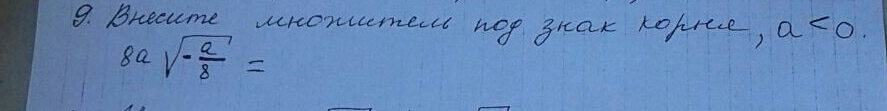 9. Внесите множитель под знак корня, a<0.
8a √(-a/8) =